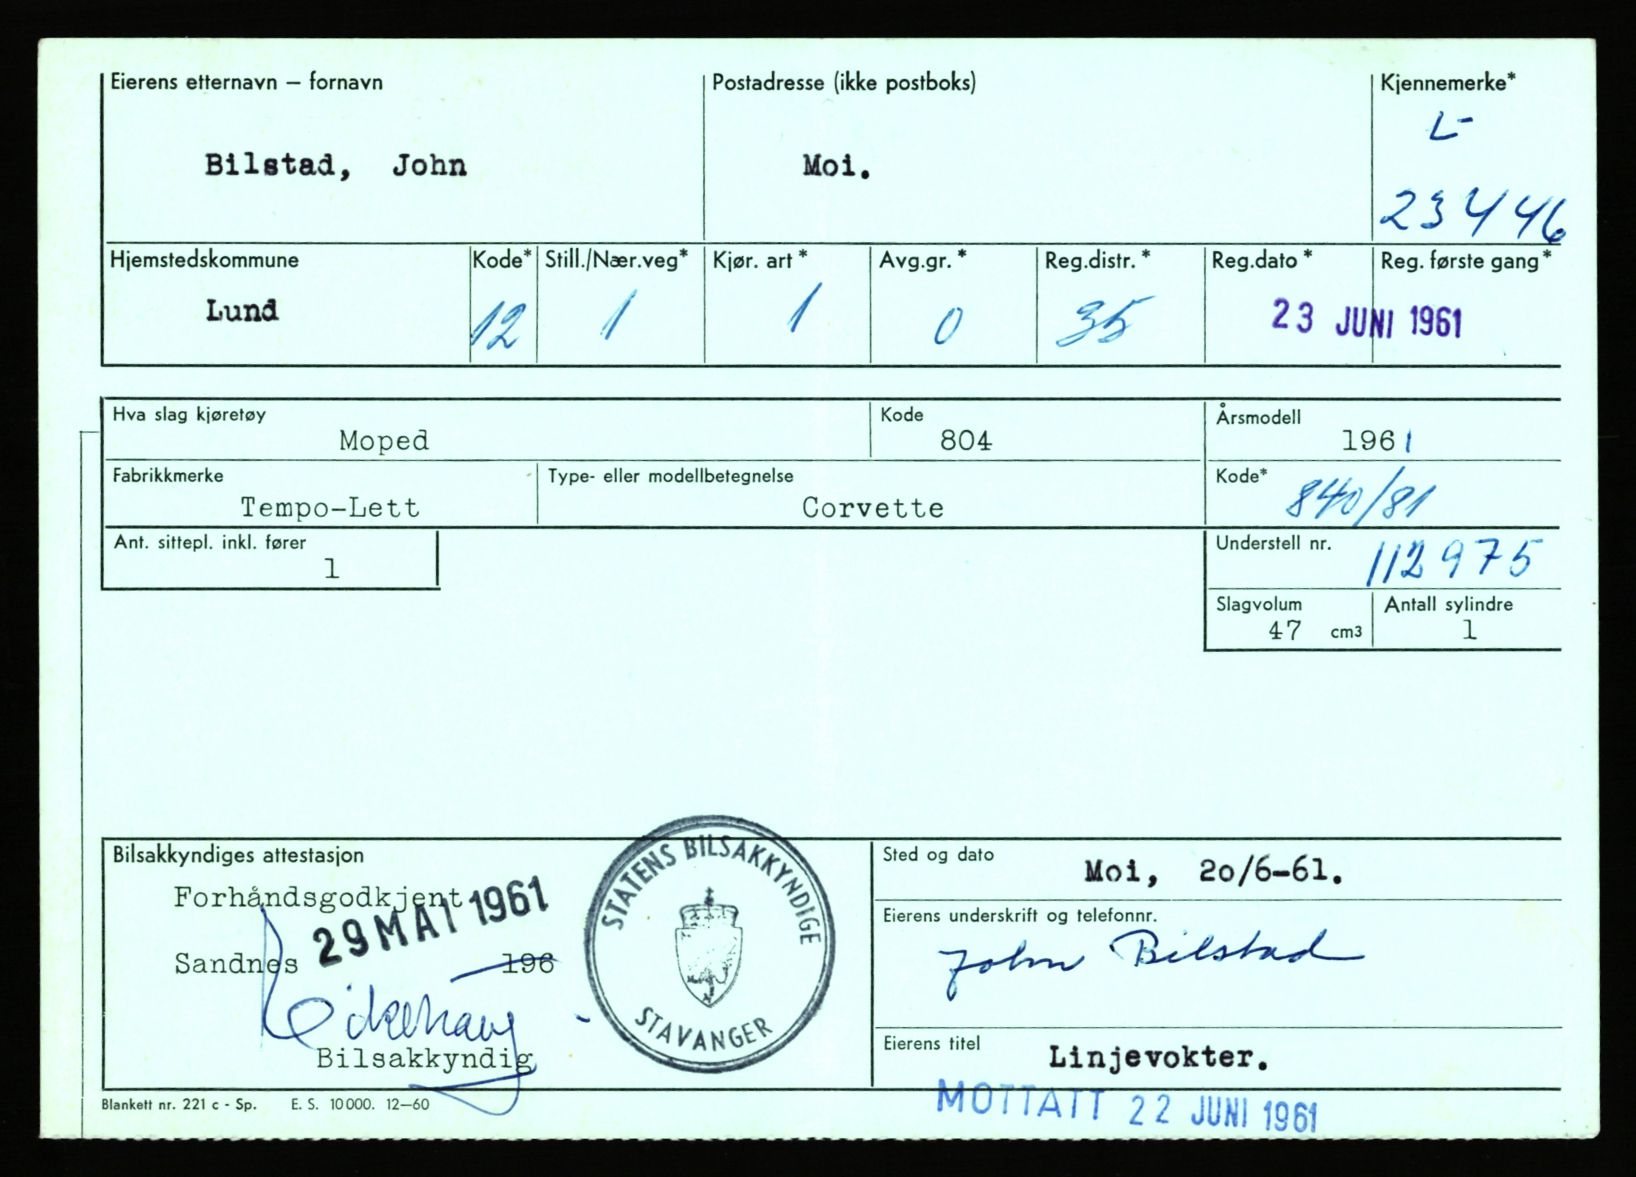 Eierens etternavn – fornavn
Postadresse (ikke postboks)
Kjennemerke*
L-
Bilstad, John
Moi.
23446
Hjemstedskommune
Kode*
Still./Nær.veg*
Kjør. art *
Avg.gr. *
Reg.distr. *
Reg.dato *
Reg. første gang *
Lund
12
1
1
0
35
23 JUNI 1961
Hva slag kjøretøy
Kode
Årsmodell
Moped
804
1961
Fabrikkmerke
Type- eller modellbetegnelse
Kode*
Tempo-Lett
Corvette
840/81
Ant. sittepl. inkl. fører
Understell nr.
1
112975
Slagvolum
Antall sylindre
47 cm3
1
Bilsakkyndiges attestasjon
Forhåndsgodkjent
29 MAI 1961
Sandnes
196
Bilsakkyndig
STATENS BILSAKKYNDIGE
STAVANGER
Sted og dato
Moi, 20/6-61.
Eierens underskrift og telefonnr.
John Bilstad
Eierens titel
Linjevokter.
Blankett nr. 221 c - Sp. E. S. 10000. 12–60
MOTTATT 22 JUNI 1961